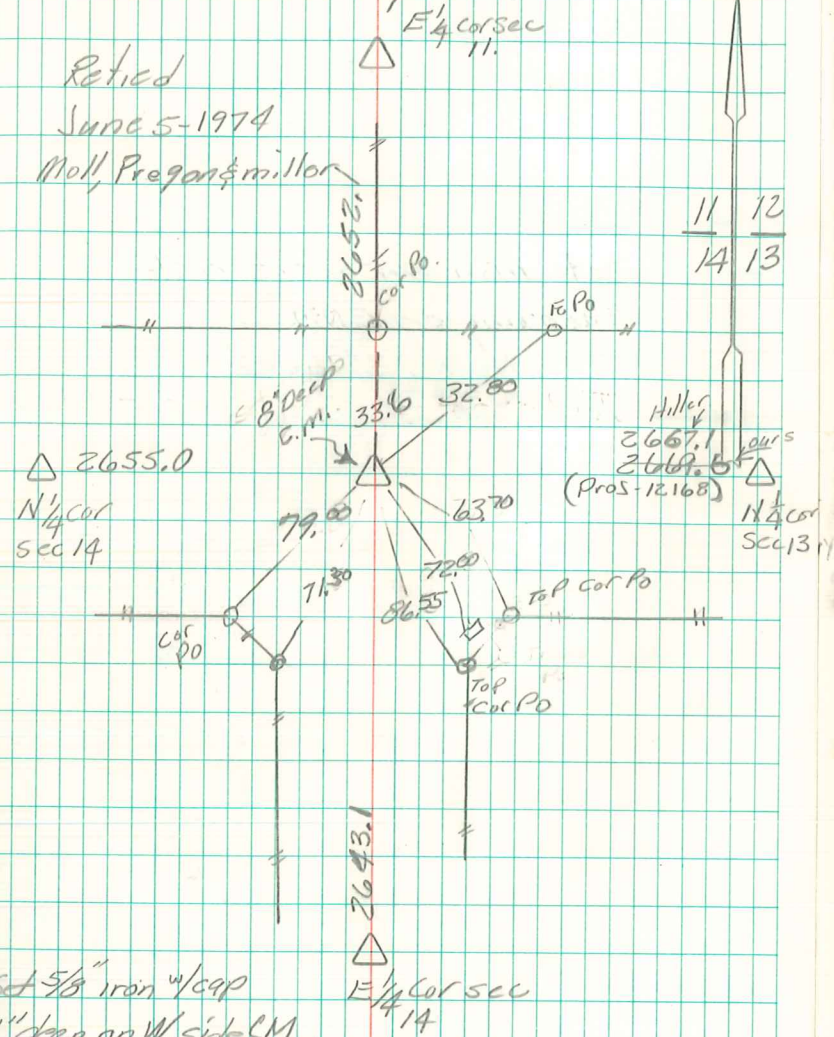 E 1/4 Cor sec
11.
Retied
June 5-1974
Moll, Pregon & millor
2652.
11 | 12
14 | 13
Cor Po.
Fe Po
8" Deep
C.M.
33.6
32.80
Hiller
2667.1
ours
2669.6
(Pros-12168)
△ 2655.0
N 1/4 cor
sec 14
N 1/4 cor
Sec 13
79.00
63.70
71.30
72.00
86.55
Top Cor Po
Cor
Po
Top
Cor Po
2643.1
Set 5/8" iron w/cap
E 1/4 Cor sec
14
deep on W side CM